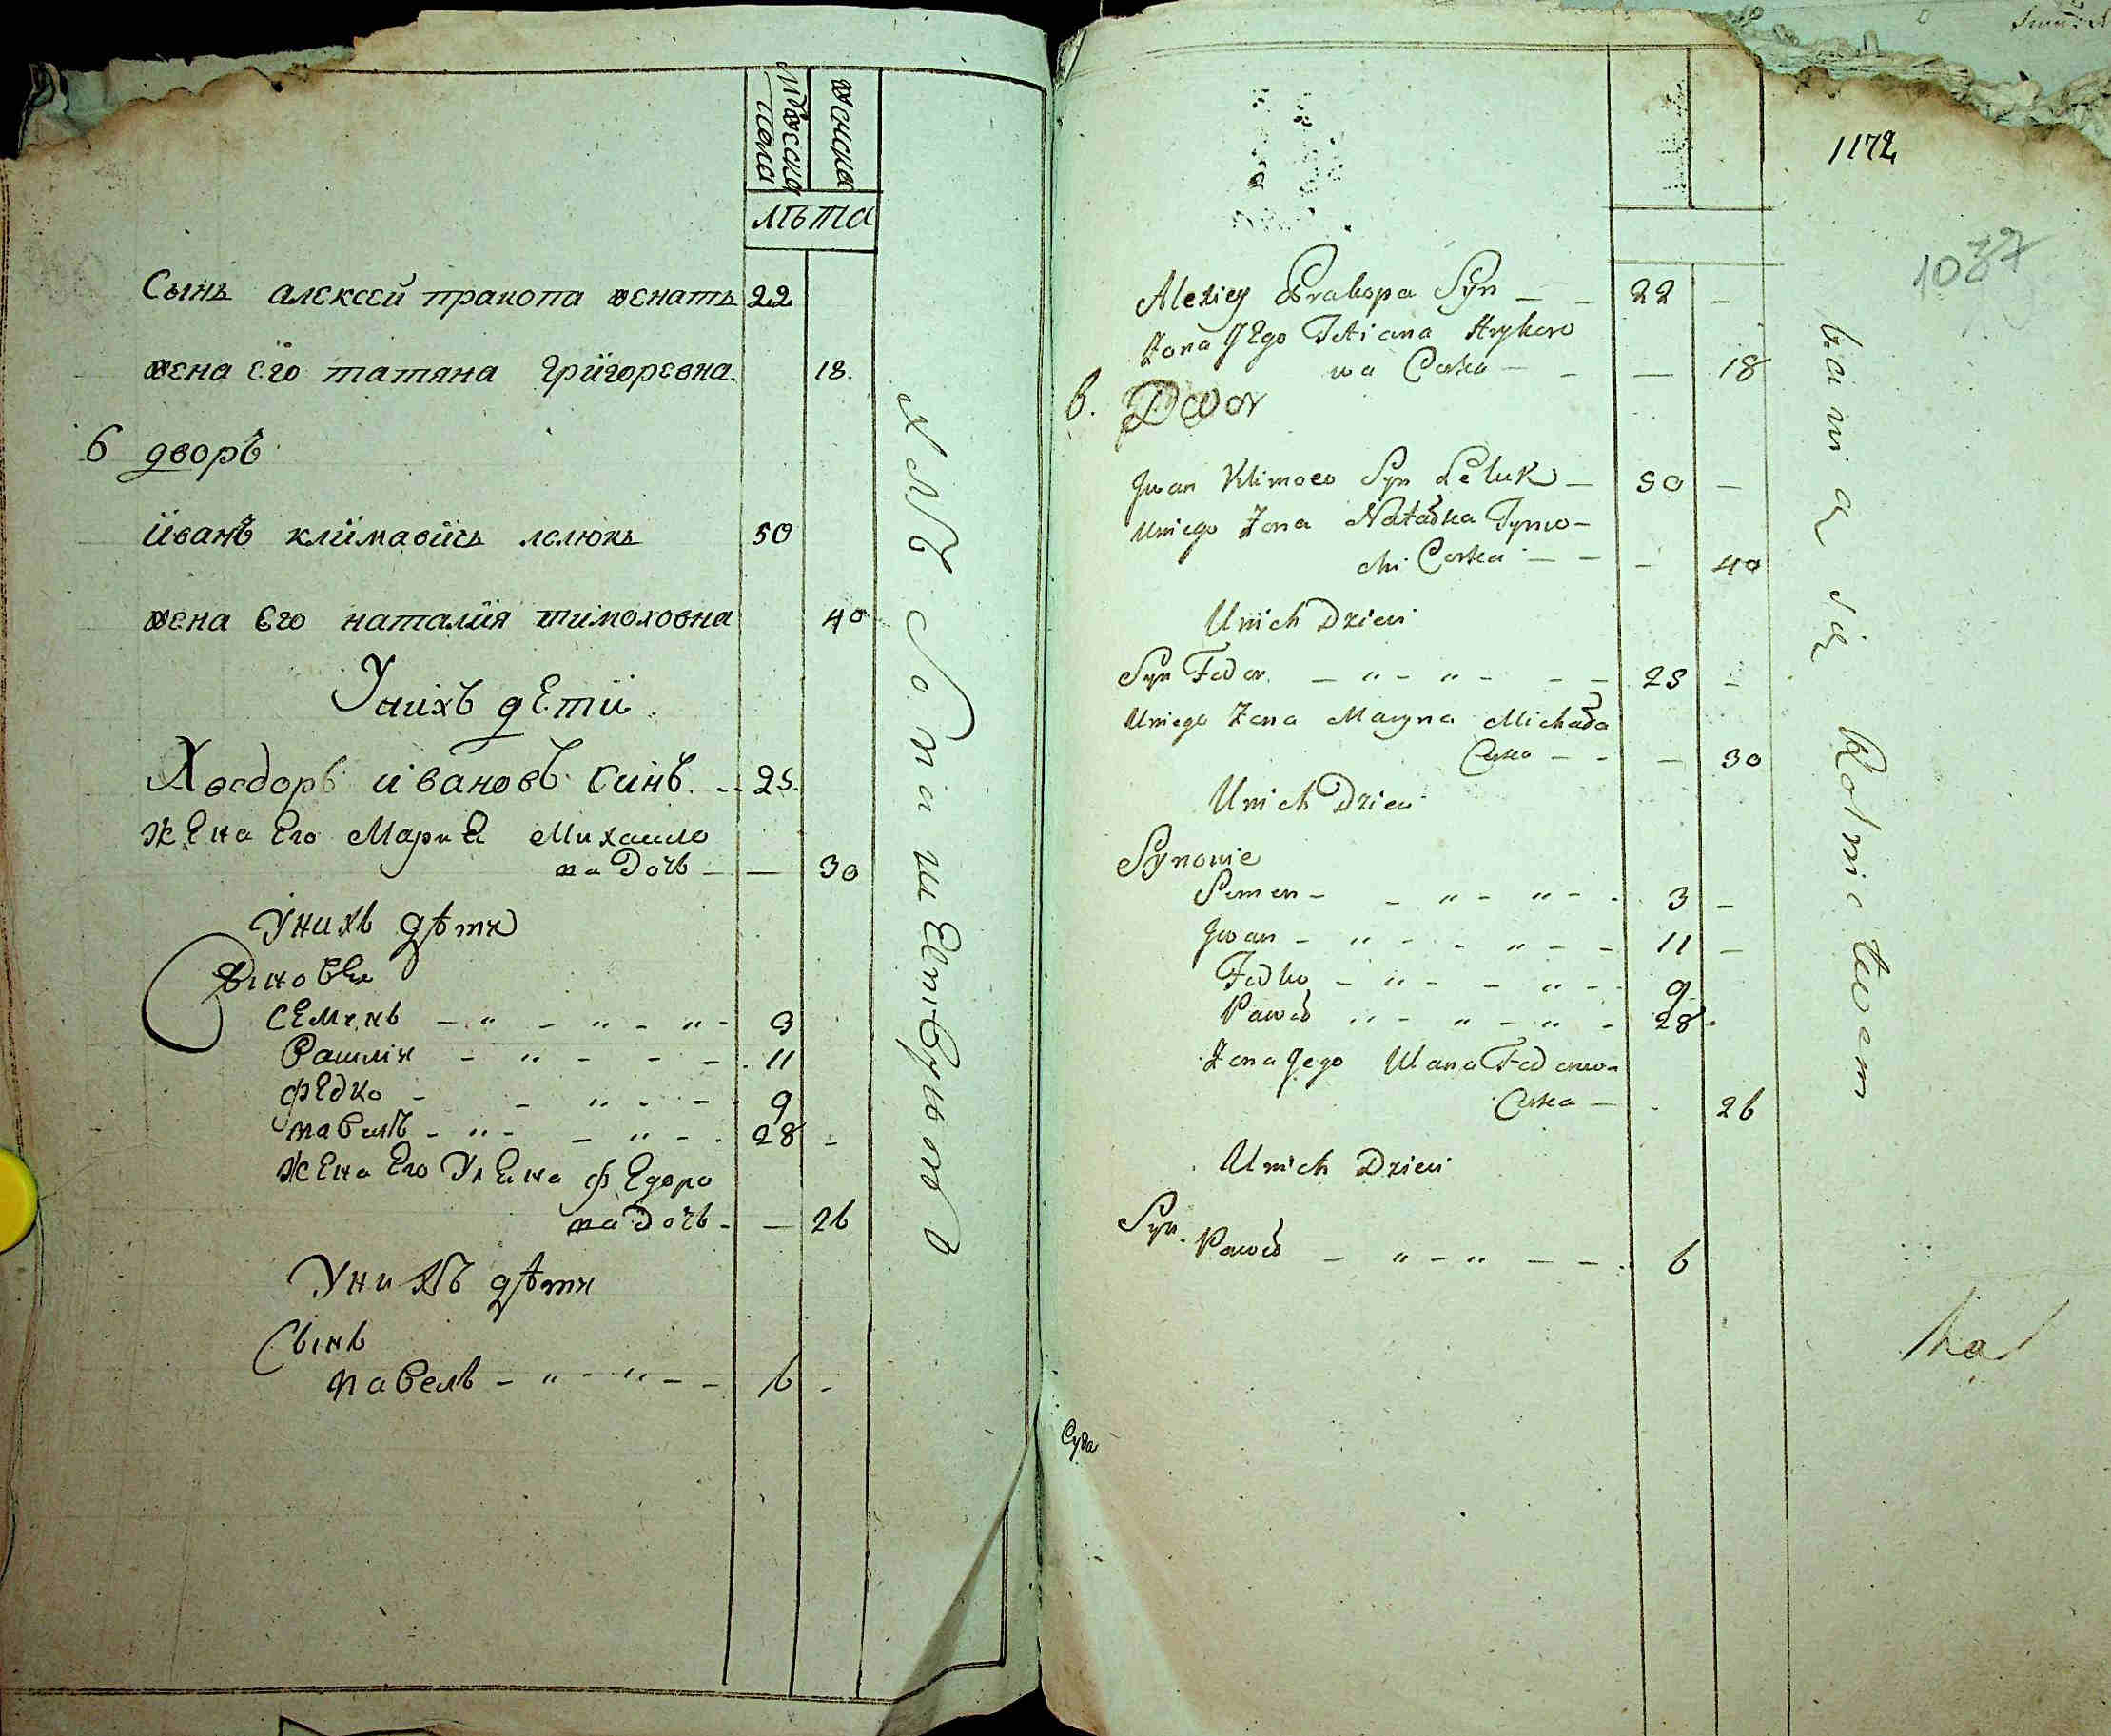 мужеска пола
женска
лѣта
Сынъ алексей пракопа женатъ 22
жена его татяна григоревна. 18.
6 дворъ
иванъ климавичь лелюкъ 50
жена его наталия тимоховна 40
Унихъ дЕти
Хведоръ ивановъ синъ. - - 25.
жЕна Его МариЕ Михаило
ва Дочь - — 30
Унихъ дѣти
Синовья
СЕменъ - " - " - " - 3
- " - - - 11
фЕдко - - " - - 9
павелъ - " - - " - - 28 -
жЕна Его Ульяна фЕдоро
ва Дочь - — 26
Унихъ дѣти
Сынъ
павелъ - " - " - - 6 -
1172
1037
Alexiey Prakopa Syn - - 22 -
Zona JEgo Tatiana Hryhoro
wa Corka - - — 18
6. Dwor
Jwan Klimow Syn Leluk - 50 -
Uniego Zona Natałka Tymo-
chi Corka - - - 40
Unich Dzieci
Syn Fedor. - " - " - - - 25 -
Uniego Zona Maryna Michała
Corka - - — 30
Unich Dzieci
Synowie
Semen - - " - " - - 3 -
Jwan - " - - " - - 11 -
Fedko - " - - " - - 9
Paweł " - " - " - 28 -
Zona Jego Ulana Fedorow-
Corka - - 26
Unich Dzieci
Syn. Paweł - " - " - - - 6
bawią się Rolnictwem
Суда